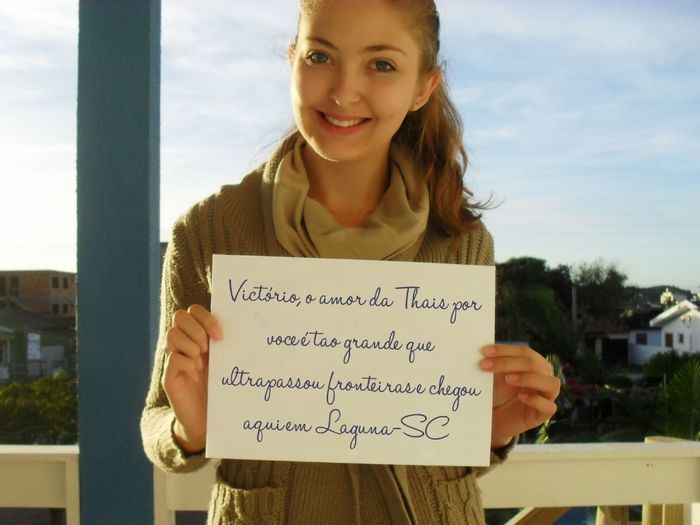 Victório, o amor da Thais por
voce é tao grande que
ultrapassou fronteiras e chegou
aqui em Laguna-SC